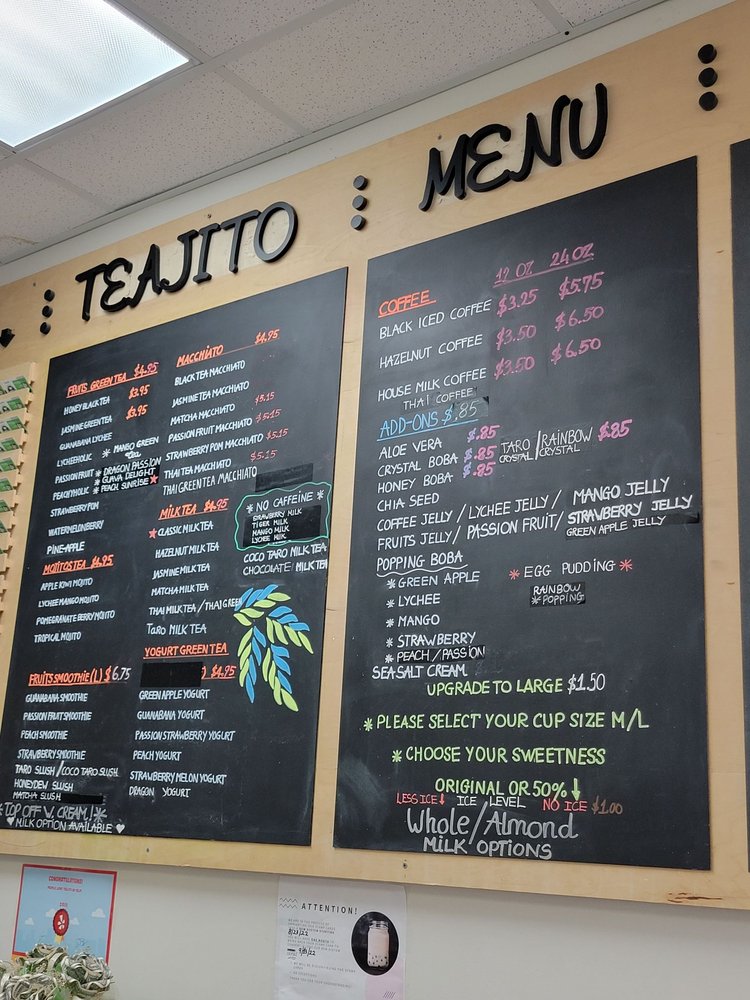 TEAJITO
MENU
FRUITS GREEN TEA $4.95
HONEY BLACK TEA $3.95
JASMINE GREEN TEA $3.95
GUANABANA LYCHEE
LYCHEEHOLIC * MANGO GREEN TEA
PASSION FRUIT * DRAGON PASSION
* GUAVA DELIGHT
PEACHYHOLIC * PEACH SUNRISE
STRAWBERRY POM
WATERMELONBERRY
PINE-APPLE
MOJITOS TEA $4.95
APPLE KIWI MOJITO
LYCHEE MANGO MOJITO
POMEGRANATE BERRY MOJITO
TROPICAL MOJITO
FRUITS SMOOTHIE (L) $6.75
GUANABANA SMOOTHIE
PASSION FRUIT SMOOTHIE
PEACH SMOOTHIE
STRAWBERRY SMOOTHIE
TARO SLUSH / COCO TARO SLUSH
HONEYDEW SLUSH
MATCHA SLUSH
*TOP OFF W. CREAM!*
♥ MILK OPTION AVAILABLE ♥
MACCHIATO $4.95
BLACK TEA MACCHIATO
JASMINE TEA MACCHIATO
MATCHA MACCHIATO $5.15
PASSION FRUIT MACCHIATO $5.15
STRAWBERRY POM MACCHIATO $5.15
THAI TEA MACCHIATO $5.15
THAI GREEN TEA MACCHIATO
MILK TEA $4.95
CLASSIC MILK TEA
HAZELNUT MILK TEA
JASMINE MILK TEA
MATCHA MILK TEA
THAI MILK TEA / THAI GREEN
TARO MILK TEA
* NO CAFFEINE *
STRAWBERRY MILK
TIGER MILK
MANGO MILK
LYCHEE MILK
COCO TARO MILK TEA
CHOCOLATE MILK TEA
YOGURT GREEN TEA
$4.95
GREEN APPLE YOGURT
GUANABANA YOGURT
PASSION STRAWBERRY YOGURT
PEACH YOGURT
STRAWBERRY MELON YOGURT
DRAGON YOGURT
12 OZ 24 OZ
COFFEE
BLACK ICED COFFEE $3.25 $5.75
HAZELNUT COFFEE $3.50 $6.50
HOUSE MILK COFFEE $3.50 $6.50
THAI COFFEE
ADD-ONS $.85
ALOE VERA $.85
CRYSTAL BOBA $.85 TARO CRYSTAL / RAINBOW CRYSTAL $.85
HONEY BOBA $.85
CHIA SEED
COFFEE JELLY / LYCHEE JELLY / MANGO JELLY
FRUITS JELLY / PASSION FRUIT / STRAWBERRY JELLY
GREEN APPLE JELLY
POPPING BOBA
* GREEN APPLE
* LYCHEE
* MANGO
* STRAWBERRY
* PEACH / PASSION
* EGG PUDDING *
RAINBOW
* POPPING
SEA SALT CREAM
UPGRADE TO LARGE $1.50
* PLEASE SELECT YOUR CUP SIZE M/L
* CHOOSE YOUR SWEETNESS
ORIGINAL OR 50% ↓
LESS ICE ↓ ICE LEVEL NO ICE $1.00
Whole/Almond
MILK OPTIONS
CONGRATULATIONS!
ATTENTION!